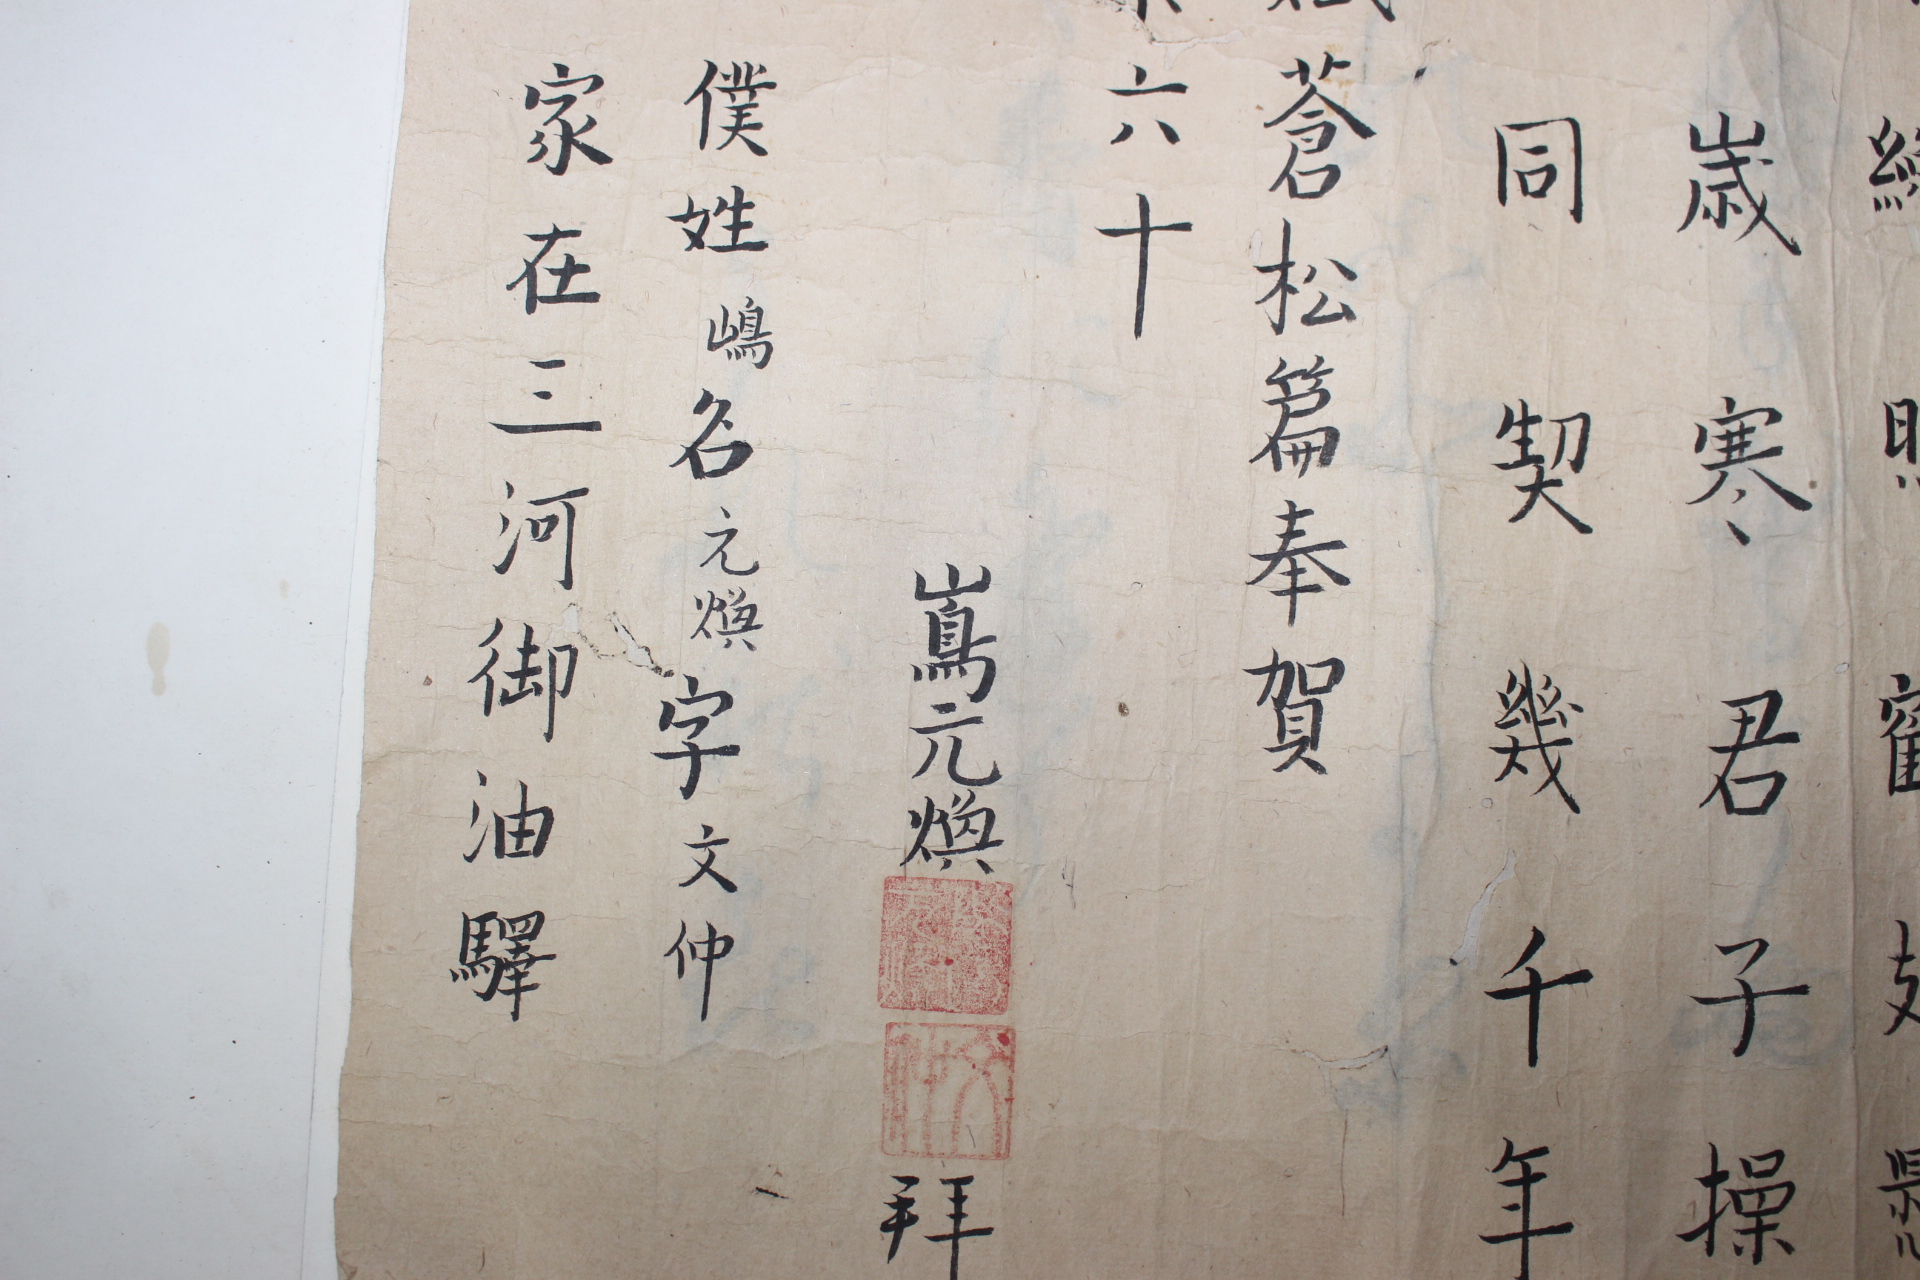 照
歳寒君子操
同契幾千年
蒼松篇奉賀
六十
嶌元煥
文仲
拜
僕姓嶋名元煥字文仲
家在三河御油驛